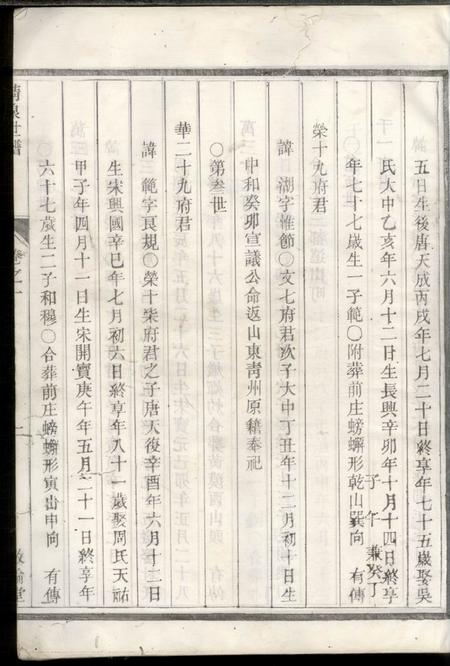 五日生後唐天成丙戌年七月二十日終享年七十五歲娶吳
氏大中乙亥年六月十二日生長興辛卯年十月十四日終享
年七十七歲生一子範〇附葬前庄螃蠏形乾山巽向 有傳
子午兼癸丁
榮十九府君
諱 湖字惟節〇文七府君次子大中丁丑年十二月初十日生
中和癸卯宣議公命返山東靑州原籍奉祀
〇第叁世
華二十九府君
諱 範字良規〇榮十柒府君之子唐天復辛酉年六月十三日
生宋興國辛巳年七月初六日終享年八十一歲娶周氏天祐
甲子年四月十一日生宋開寶庚午年五月二十一日終享年
六十七歲生二子和穆〇合葬前庄螃蠏形寅山申向 有傳
世譜
卷之一
二
敦倫堂